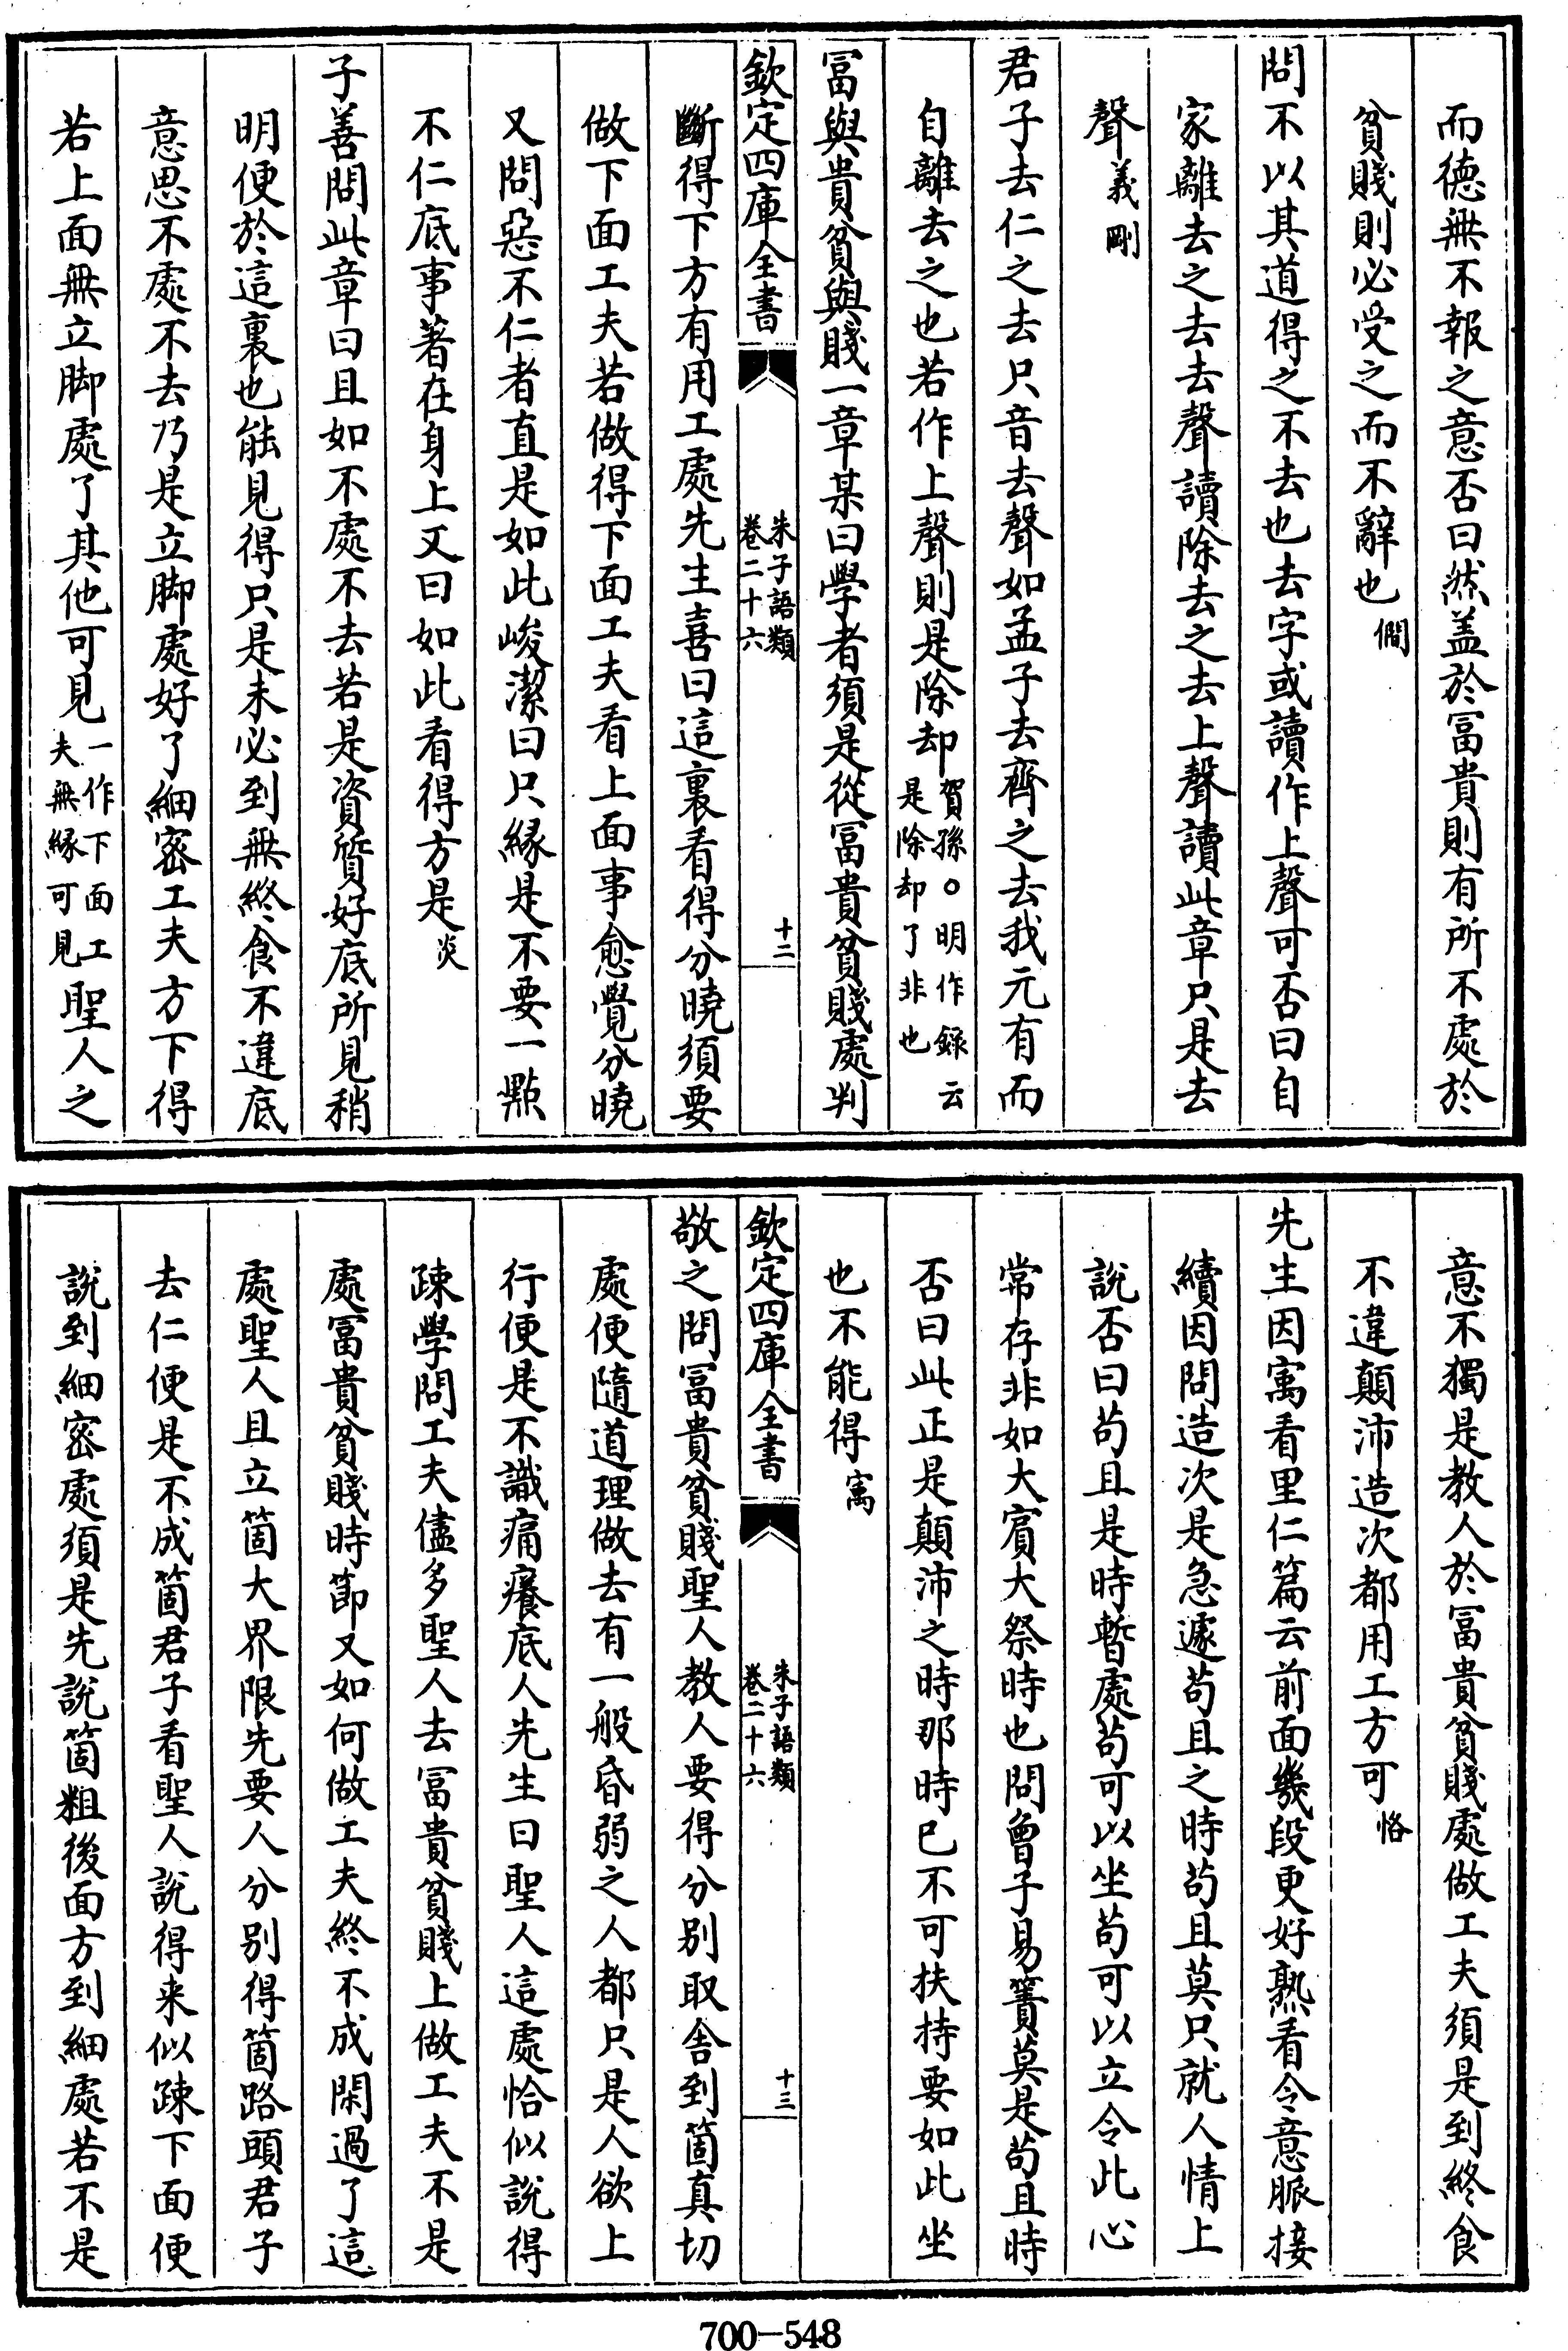 而德無不報之意否曰然盖於冨貴則有所不處於
貧賤則必受之而不辭也 僩
問不以其道得之不去也去字或讀作上聲可否曰自
家離去之去去聲讀除去之去上聲讀此章只是去
聲 義剛
君子去仁之去只音去聲如孟子去齊之去我元有而
自離去之也若作上聲則是除却 賀孫○明作錄云
是除却了非也
冨與貴貧與賤一章某曰學者須是從冨貴貧賤處判
欽定四庫全書
朱子語類
卷二十六
十二
斷得下方有用工處先生喜曰這裏看得分曉須要
做下面工夫若做得下面工夫看上面事愈覺分曉
又問惡不仁者直是如此峻潔曰只縁是不要一㸃
不仁底事著在身上又曰如此看得方是 炎
子善問此章曰且如不處不去若是資質好底所見稍
明便於這裏也能見得只是未必到無終食不違底
意思不處不去乃是立脚處好了細密工夫方下得
若上面無立脚處了其他可見 一作下面工
夫無縁可見 聖人之
意不獨是教人於冨貴貧賤處做工夫須是到終食
不違顛沛造次都用工方可 恪
先生因寓看里仁篇云前面幾段更好熟看令意脈接
續因問造次是急遽苟且之時苟且莫只就人情上
說否曰苟且是時暫處苟可以坐苟可以立令此心
常存非如大賔大祭時也問曾子易簀莫是苟且時
否曰此正是顛沛之時那時已不可扶持要如此坐
也不能得 寓
欽定四庫全書
朱子語類
卷二十六
十三
敬之問冨貴貧賤聖人教人要得分别取舍到箇真切
處便隨道理做去有一般昏弱之人都只是人欲上
行便是不識痛癢底人先生曰聖人這處恰似說得
疎學問工夫儘多聖人去冨貴貧賤上做工夫不是
處冨貴貧賤時節又如何做工夫終不成閑過了這
處聖人且立箇大界限先要人分别得箇路頭君子
去仁便是不成箇君子看聖人說得来似疎下面便
說到細密處須是先說箇粗後面方到細處若不是
700-548